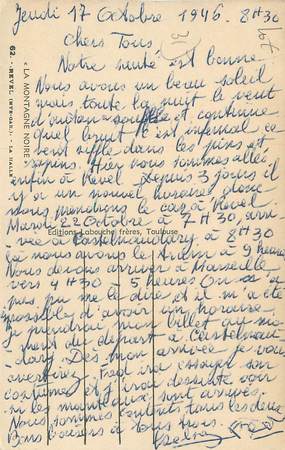 Jeudi 17 Octobre 1946. 8H30
Chers Tous.
Notre santé est bonne
Nous avons un beau soleil
mais toute la nuit le vent
d'autan a soufflé et continue
quel bruit c'est infernal ce
vent siffle dans les pins et
sapins. Hier nous sommes allés
enfin à Revel. Depuis 3 jours il
y a un nouvel horaire donc
nous prendrons le car à Revel
Mardi 22 Octobre à 7H30, arri-
vée à Castelnaudary à 8H30
là nous avons le train à 9 heures
Nous devons arriver à Marseille
vers 4H30 5 heures On n'a
pas pu me le dire et il m'a été
impossible d'avoir un horaire.
Je prendrai mon billet au mo-
ment du départ à Castelnau-
dary. Dès mon arrivée je vous
avertirai. Fred ira essayer son
costume et j'irai
si les manteaux sont arrivés.
Nous sommes contents tous les deux
Bons baisers à tous trois.
62 - REVEL (HTE-GAR.) - LA HALLE
« LA MONTAGNE NOIRE »
Editions Labouche frères, Toulouse